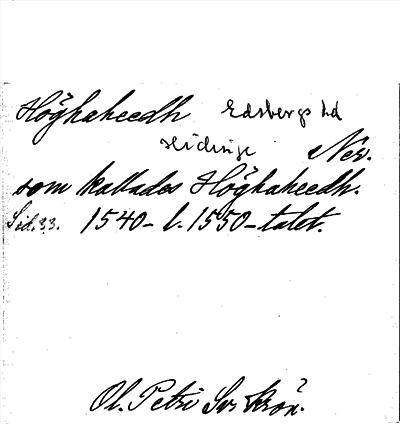 Högkaheedh Edsbergs hd
Hidinge Ner.
som kallades Högkaheedh.
Sid. 33. 1540- l. 1550-talet.
Ol. Petri Sv. Krön.